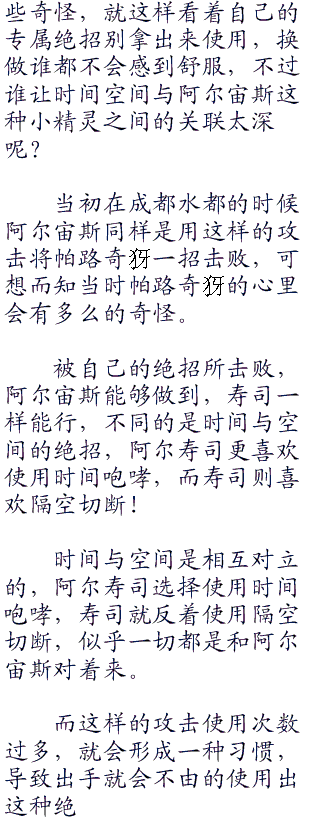 些奇怪，就这样看着自己的
专属绝招别拿出来使用，换
做谁都不会感到舒服，不过
谁让时间空间与阿尔宙斯这
种小精灵之间的关联太深
呢？
当初在成都水都的时候
阿尔宙斯同样是用这样的攻
击将帕路奇犽一招击败，可
想而知当时帕路奇犽的心里
会有多么的奇怪。
被自己的绝招所击败，
阿尔宙斯能够做到，寿司一
样能行，不同的是时间与空
间的绝招，阿尔寿司更喜欢
使用时间咆哮，而寿司则喜
欢隔空切断！
时间与空间是相互对立
的，阿尔寿司选择使用时间
咆哮，寿司就反着使用隔空
切断，似乎一切都是和阿尔
宙斯对着来。
而这样的攻击使用次数
过多，就会形成一种习惯，
导致出手就会不由的使用出
这种绝